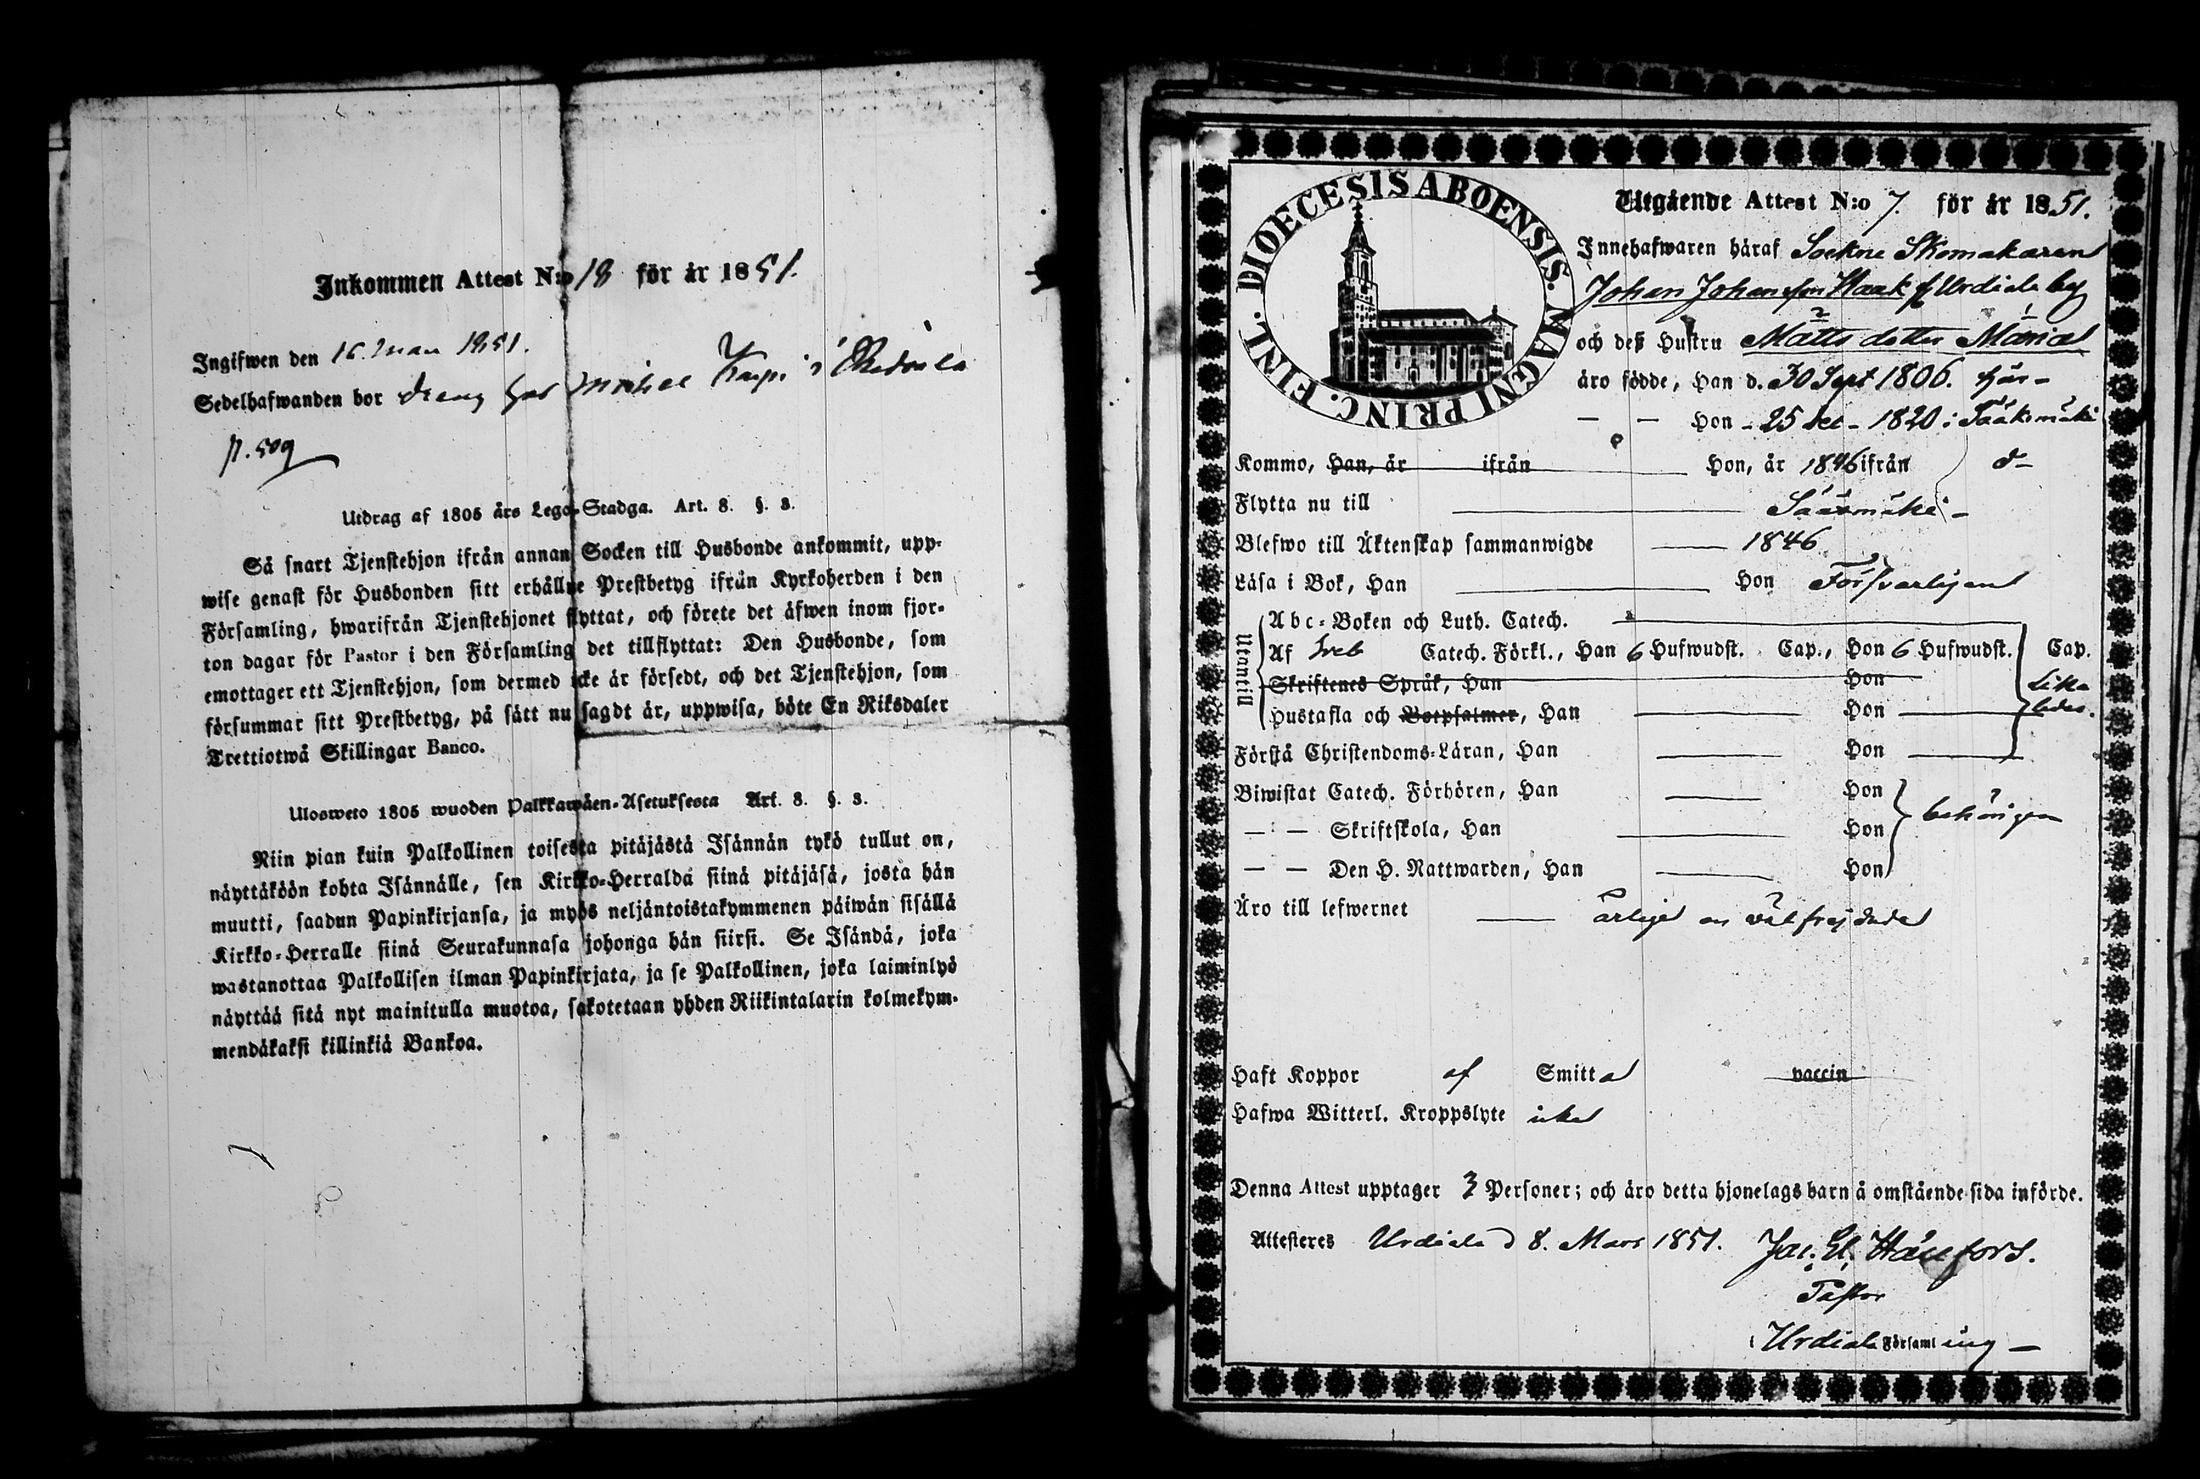 Inkommen Attest N:o 18 för år 1851.
Ingifwen den 16 Mars 1851.
Sedelhafwanden bor dräng hos Michel Karpi i
p. 509
Utdrag af 1805 års Lego-Stadga. Art. 8. §. 3.
Så snart Tjenstehjon ifrån annan Socken till Husbonde ankommit, upp-
wise genast för Husbonden sitt erhållne Prestbetyg ifrån Kyrkoherden i den
Församling, hwarifrån Tjenstehjonet flyttat, och förete det äfwen inom fjor-
ton dagar för Pastor i den Församling det tillflyttat: Den Husbonde, som
emottager ett Tjenstehjon, som dermed icke är försedt, och det Tjenstehjon, som
försummar sitt Prestbetyg, på sätt nu sagdt är, uppwisa, böte En Riksdaler
Trettiotwå Skillingar Banco.
Ulosweto 1805 wuoden Palkkawäen-Asetuksesta Art. 8. §. 3.
Niin pian kuin Palkollinen toisesta pitäjästä Isännän tykö tullut on,
näyttäköön kohta Isännälle, sen Kirkko-Herralda siinä pitäjäsä, josta hän
muutti, saadun Papinkirjansa, ja myös neljäntoistakymmenen päiwän sisällä
Kirkko-Herralle siinä Seurakunnasa johonga hän siirsi. Se Isändä, joka
wastanottaa Palkollisen ilman Papinkirjata, ja se Palkollinen, joka laiminlyö
näyttää sitä nyt mainitulla muotoa, sakotetaan yhden Riikintalarin kolmekym-
mendäkaksi killinkiä Bankoa.
DIOECESIS ABOENSIS. MAGNI PRINC. FINL.
Utgående Attest N:o 7. för år 1851.
Innehafwaren häraf Sockne Skomakaren
Johan Johansson Haak fr Urdiala by
och deß Hustru Matts dotter Maria
äro födde, Han d. 30 Sept 1806. här-
— — Hon - 25 dec - 1820 i Sääksmäki
Kommo, Han, år ifrån Hon, år 1846 ifrån d-
Flytta nu till Sääxmäki -
Blefwo till Äktenskap sammanwigde 1846
Läsa i Bok, Han Hon Försvarligen
Utantill
Abc-Boken och Luth. Catech.
Af Sveb Catech. Förkl., Han 6 Hufwudst. Cap., Hon 6 Hufwudst. Cap.
Skriftenes Språk, Han Hon Lika
Hustafla och Botpsalmer, Han Hon ledes.
Förstå Christendoms-Läran, Han Hon
Biwistat Catech. Förhören, Han Hon
— — Skriftskola, Han Hon behörigen
— — Den H. Nattwarden, Han Hon
Äro till lefwernet ärliga en välfrejdade
Haft Koppor af Smitta vaccin
Hafwa Witterl. Kroppslyte icke
Denna Attest upptager 3 Personer; och äro detta hjonelags barn å omstående sida införde.
Attesteres Urdiala d 8. Mars 1851. Jac. Ed. Hällfors.
Pastor
i Urdiala Församling —